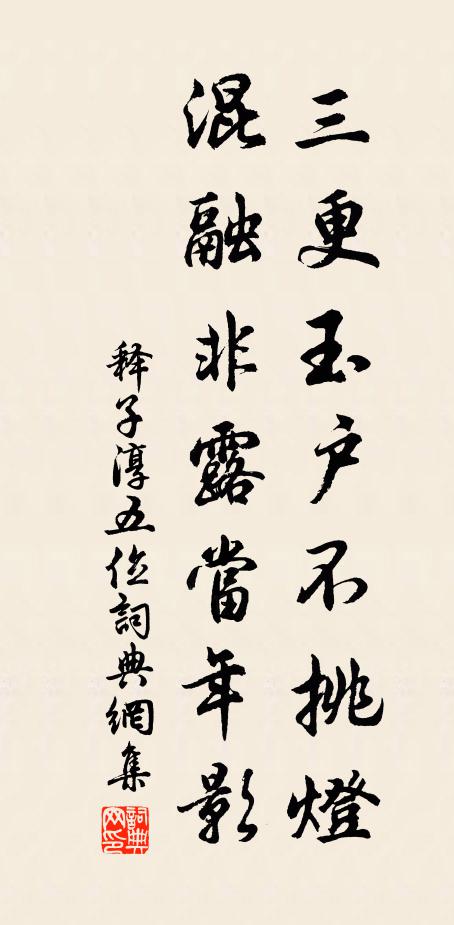 三更玉户不挑燈
混融非露當年影
释子淳五位詞典網集
詞典网印